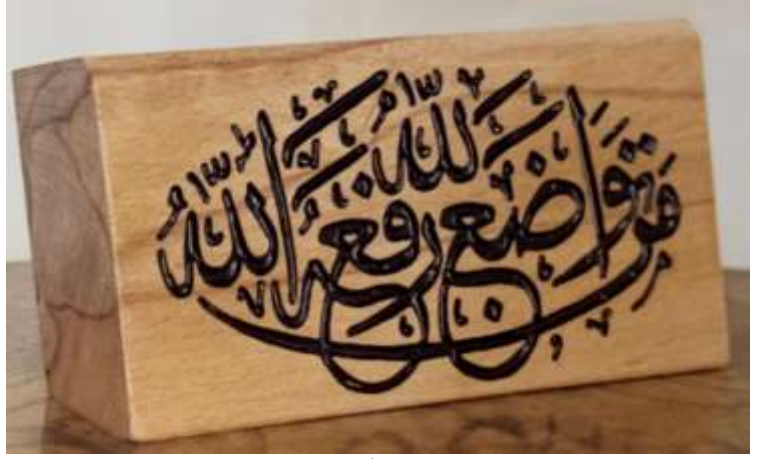 من تواضع لله رفعه الله